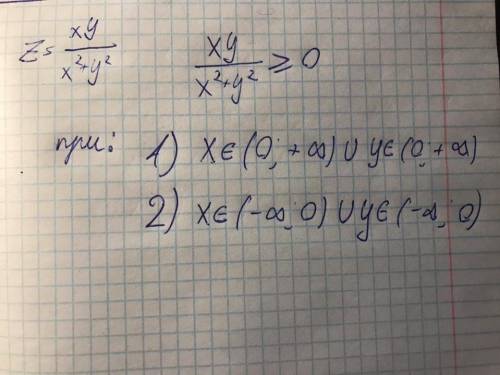 Z = xy / x²+y²
xy / x²+y² ≥ 0
при:
1) x∈(0; +∞) ∪ y∈(0; +∞)
2) x∈(-∞; 0) ∪ y∈(-∞; 0)